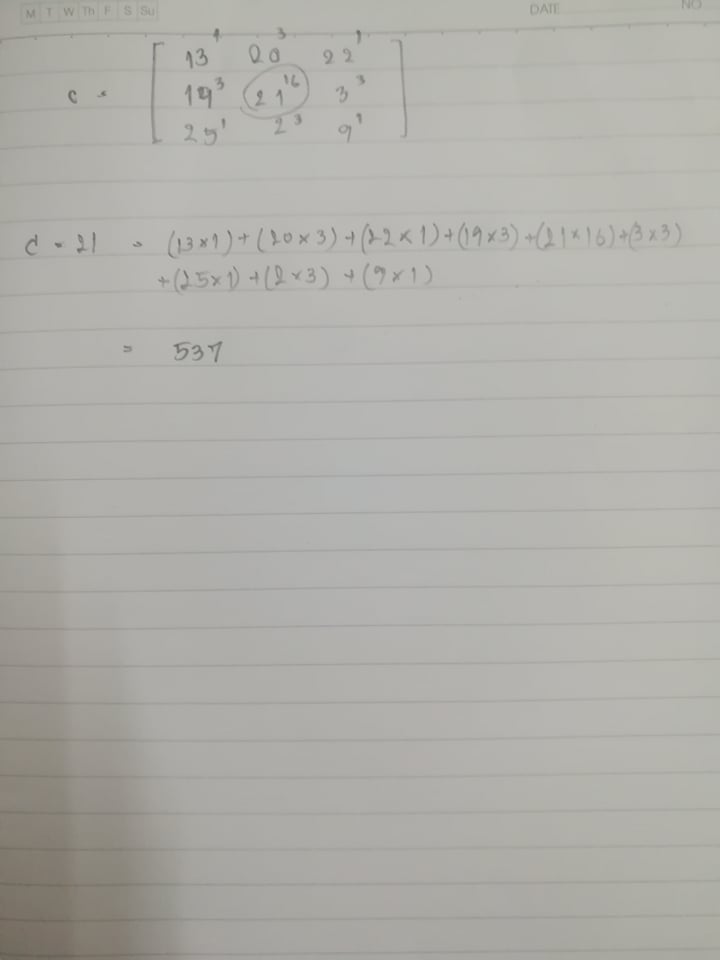 M T W Th F S Su DATE NO
13¹ 20³ 22¹
c = 19³ 21¹⁶ 3³
25¹ 2³ 9¹
d = 21 = (13×1)+(20×3)+(22×1)+(19×3)+(21×16)+(3×3)
+(25×1)+(2×3)+(9×1)
= 537